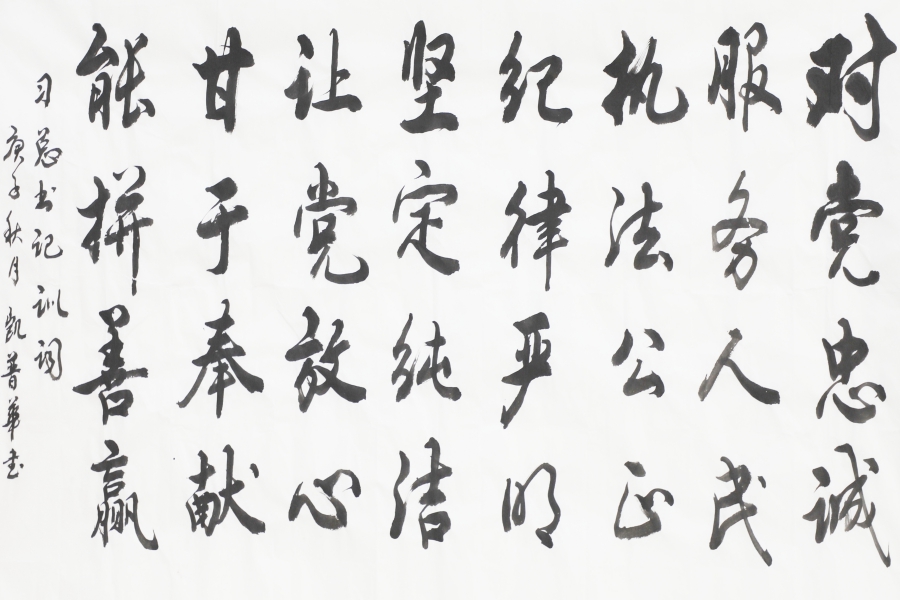 对党忠诚
服务人民
执法公正
纪律严明
坚定纯洁
让党放心
甘于奉献
能拼善赢
习总书记训词
庚子秋月凯普华书